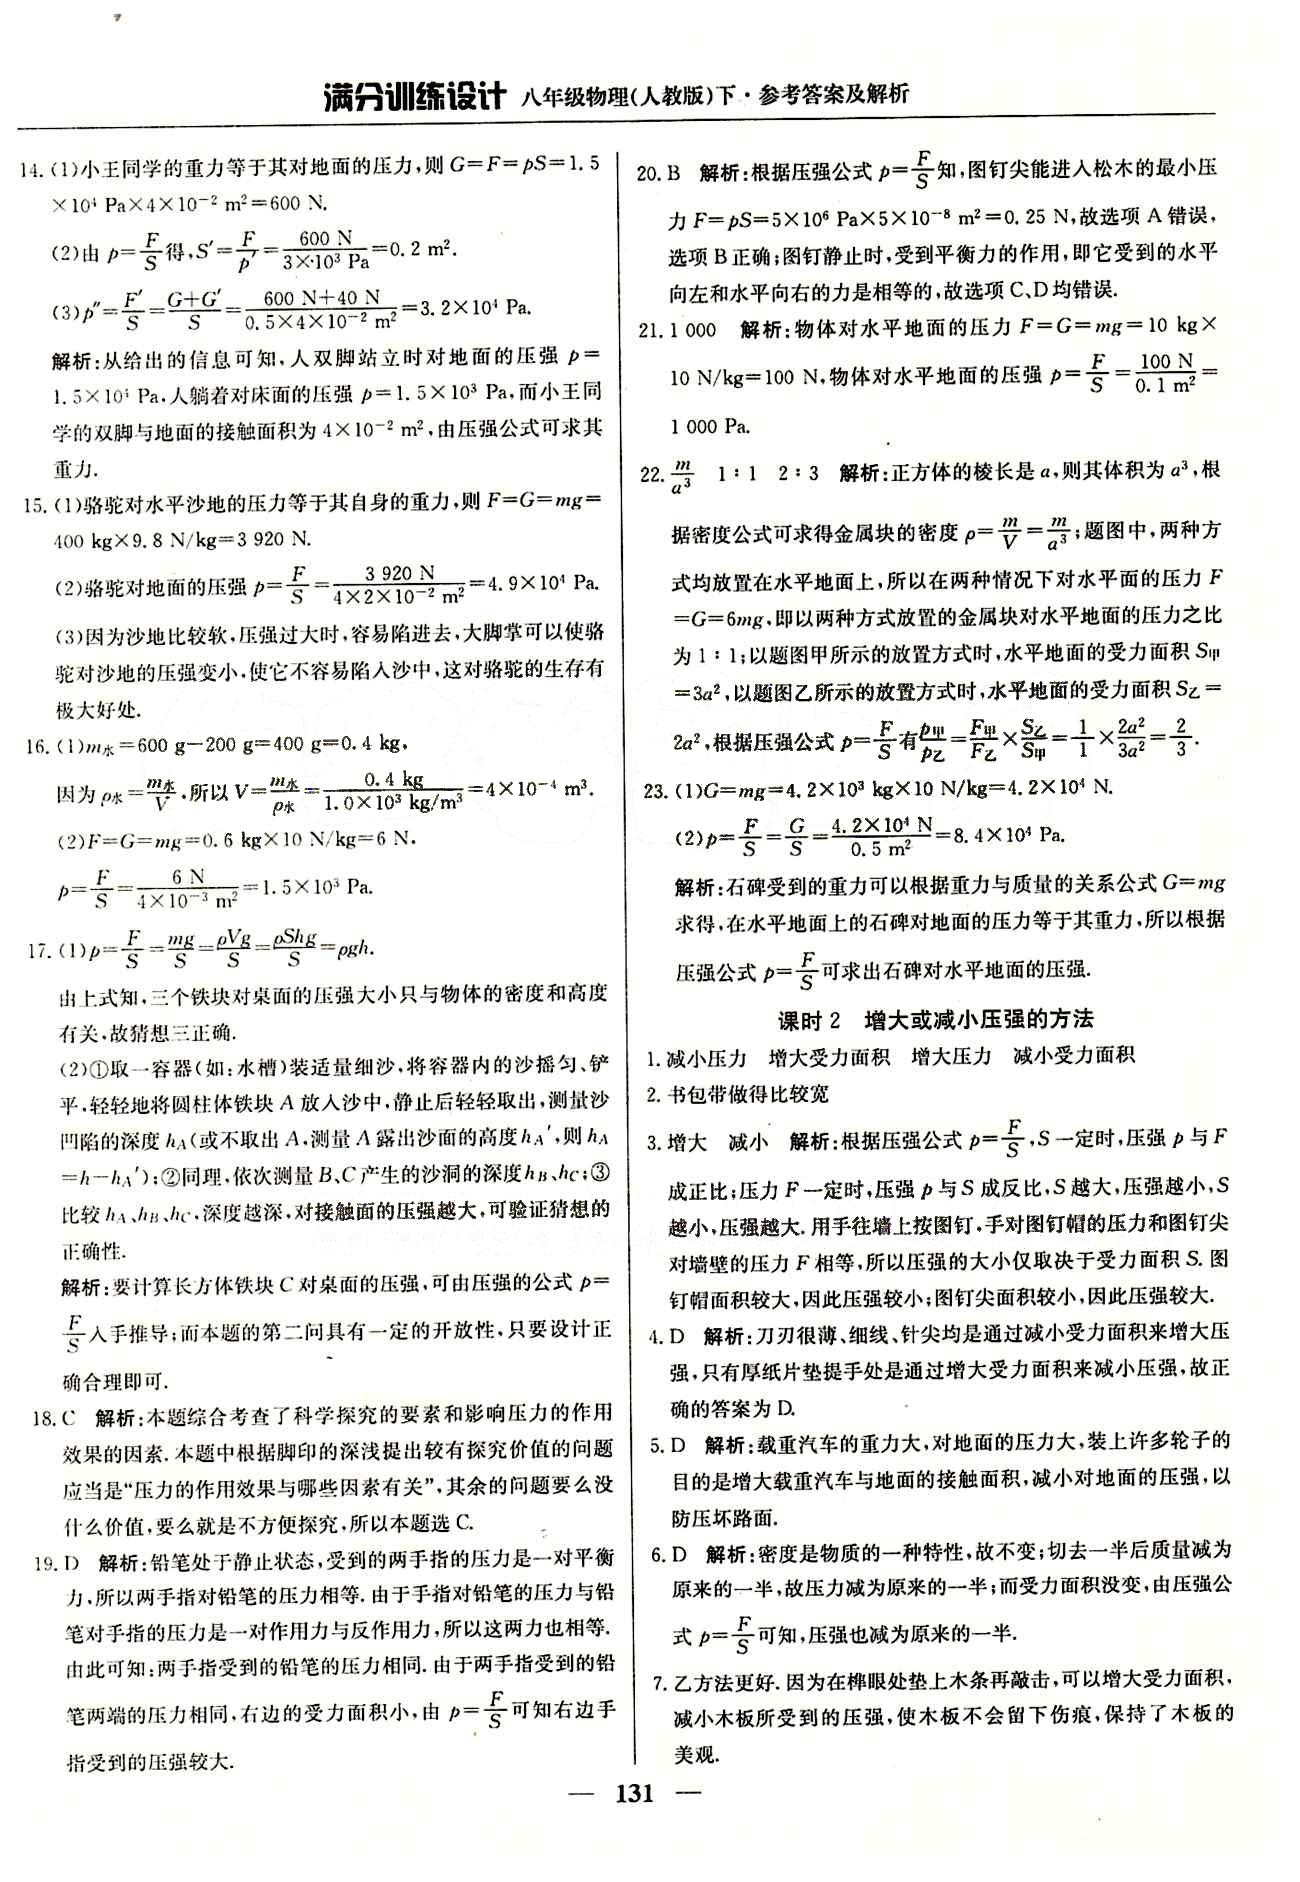 满分训练设计 八年级物理(人教版)下·参考答案及解析
14.(1)小王同学的重力等于其对地面的压力,则 G=F=pS=1.5
×10⁴ Pa×4×10⁻² m²=600 N.
(2)由 p=F/S得,S′=F/p′=600 N/3×10³ Pa=0.2 m².
(3)p″=F′/S=G+G′/S=600 N+40 N/0.5×4×10⁻² m²=3.2×10⁴ Pa.
解析:从给出的信息可知,人双脚站立时对地面的压强 p=
1.5×10⁴ Pa,人躺着对床面的压强 p=1.5×10³ Pa,而小王同
学的双脚与地面的接触面积为 4×10⁻² m²,由压强公式可求其
重力.
15.(1)骆驼对水平沙地的压力等于其自身的重力,则 F=G=mg=
400 kg×9.8 N/kg=3 920 N.
(2)骆驼对地面的压强 p=F/S=3 920 N/4×2×10⁻² m²=4.9×10⁴ Pa.
(3)因为沙地比较软,压强过大时,容易陷进去,大脚掌可以使骆
驼对沙地的压强变小,使它不容易陷入沙中,这对骆驼的生存有
极大好处.
16.(1)m水=600 g-200 g=400 g=0.4 kg,
因为 ρ水=m水/V,所以 V=m水/ρ水=0.4 kg/1.0×10³ kg/m³=4×10⁻⁴ m³.
(2)F=G=mg=0.6 kg×10 N/kg=6 N,
p=F/S=6 N/4×10⁻³ m²=1.5×10³ Pa.
17.(1)p=F/S=mg/S=ρVg/S=ρShg/S=ρgh.
由上式知,三个铁块对桌面的压强大小只与物体的密度和高度
有关,故猜想三正确.
(2)①取一容器(如:水槽)装适量细沙,将容器内的沙摇匀、铲
平,轻轻地将圆柱体铁块 A 放入沙中,静止后轻轻取出,测量沙
凹陷的深度 hA(或不取出 A,测量 A 露出沙面的高度hA′,则 hA
=h-hA′);②同理,依次测量 B、C 产生的沙洞的深度hB、hC;③
比较 hA、hB、hC,深度越深,对接触面的压强越大,可验证猜想的
正确性.
解析:要计算长方体铁块 C 对桌面的压强,可由压强的公式 p=
F/S入手推导;而本题的第二问具有一定的开放性,只要设计正
确合理即可.
18.C 解析:本题综合考查了科学探究的要素和影响压力的作用
效果的因素.本题中根据脚印的深浅提出较有探究价值的问题
应当是“压力的作用效果与哪些因素有关”,其余的问题要么没
什么价值,要么就是不方便探究,所以本题选 C.
19.D 解析:铅笔处于静止状态,受到的两手指的压力是一对平衡
力,所以两手指对铅笔的压力相等.由于手指对铅笔的压力与铅
笔对手指的压力是一对作用力与反作用力,所以这两力也相等.
由此可知:两手指受到的铅笔的压力相同.由于两手指受到的铅
笔两端的压力相同,右边的受力面积小,由 p=F/S可知右边手
指受到的压强较大.
20.B 解析:根据压强公式 p=F/S知,图钉尖能进入松木的最小压
力 F=pS=5×10⁶ Pa×5×10⁻⁸ m²=0.25 N,故选项 A 错误,
选项 B 正确;图钉静止时,受到平衡力的作用,即它受到的水平
向左和水平向右的力是相等的,故选项 C、D 均错误.
21.1 000 解析:物体对水平地面的压力 F=G=mg=10 kg×
10 N/kg=100 N,物体对水平地面的压强 p=F/S=100 N/0.1 m²=
1 000 Pa.
22.m/a³ 1∶1 2∶3 解析:正方体的棱长是 a,则其体积为 a³,根
据密度公式可求得金属块的密度 ρ=m/V=m/a³;题图中,两种方
式均放置在水平地面上,所以在两种情况下对水平面的压力 F
=G=6mg,即以两种方式放置的金属块对水平地面的压力之比
为 1∶1;以题图甲所示的放置方式时,水平地面的受力面积 S甲
=3a²,以题图乙所示的放置方式时,水平地面的受力面积 S乙=
2a²,根据压强公式 p=F/S有p甲/p乙=F甲/F乙×S乙/S甲=1/1×2a²/3a²=2/3.
23.(1)G=mg=4.2×10³ kg×10 N/kg=4.2×10⁴ N.
(2)p=F/S=G/S=4.2×10⁴ N/0.5 m²=8.4×10⁴ Pa.
解析:石碑受到的重力可以根据重力与质量的关系公式 G=mg
求得,在水平地面上的石碑对地面的压力等于其重力,所以根据
压强公式 p=F/S可求出石碑对水平地面的压强.
课时2 增大或减小压强的方法
1.减小压力 增大受力面积 增大压力 减小受力面积
2.书包带做得比较宽
3.增大 减小 解析:根据压强公式 p=F/S,S 一定时,压强 p 与 F
成正比;压力 F 一定时,压强 p 与 S 成反比,S 越大,压强越小,S
越小,压强越大.用手往墙上按图钉,手对图钉帽的压力和图钉尖
对墙壁的压力 F 相等,所以压强的大小仅取决于受力面积 S.图
钉帽面积较大,因此压强较小;图钉尖面积较小,因此压强较大.
4.D 解析:刀刃很薄、细线、针尖均是通过减小受力面积来增大压
强,只有厚纸片垫提手处是通过增大受力面积来减小压强,故正
确的答案为 D.
5.D 解析:载重汽车的重力大,对地面的压力大,装上许多轮子的
目的是增大载重汽车与地面的接触面积,减小对地面的压强,以
防压坏路面.
6.D 解析:密度是物质的一种特性,故不变;切去一半后质量减为
原来的一半,故压力减为原来的一半;而受力面积没变,由压强公
式 p=F/S可知,压强也减为原来的一半.
7.乙方法更好.因为在榫眼处垫上木条再敲击,可以增大受力面积,
减小木板所受到的压强,使木板不会留下伤痕,保持了木板的
美观.
— 131 —